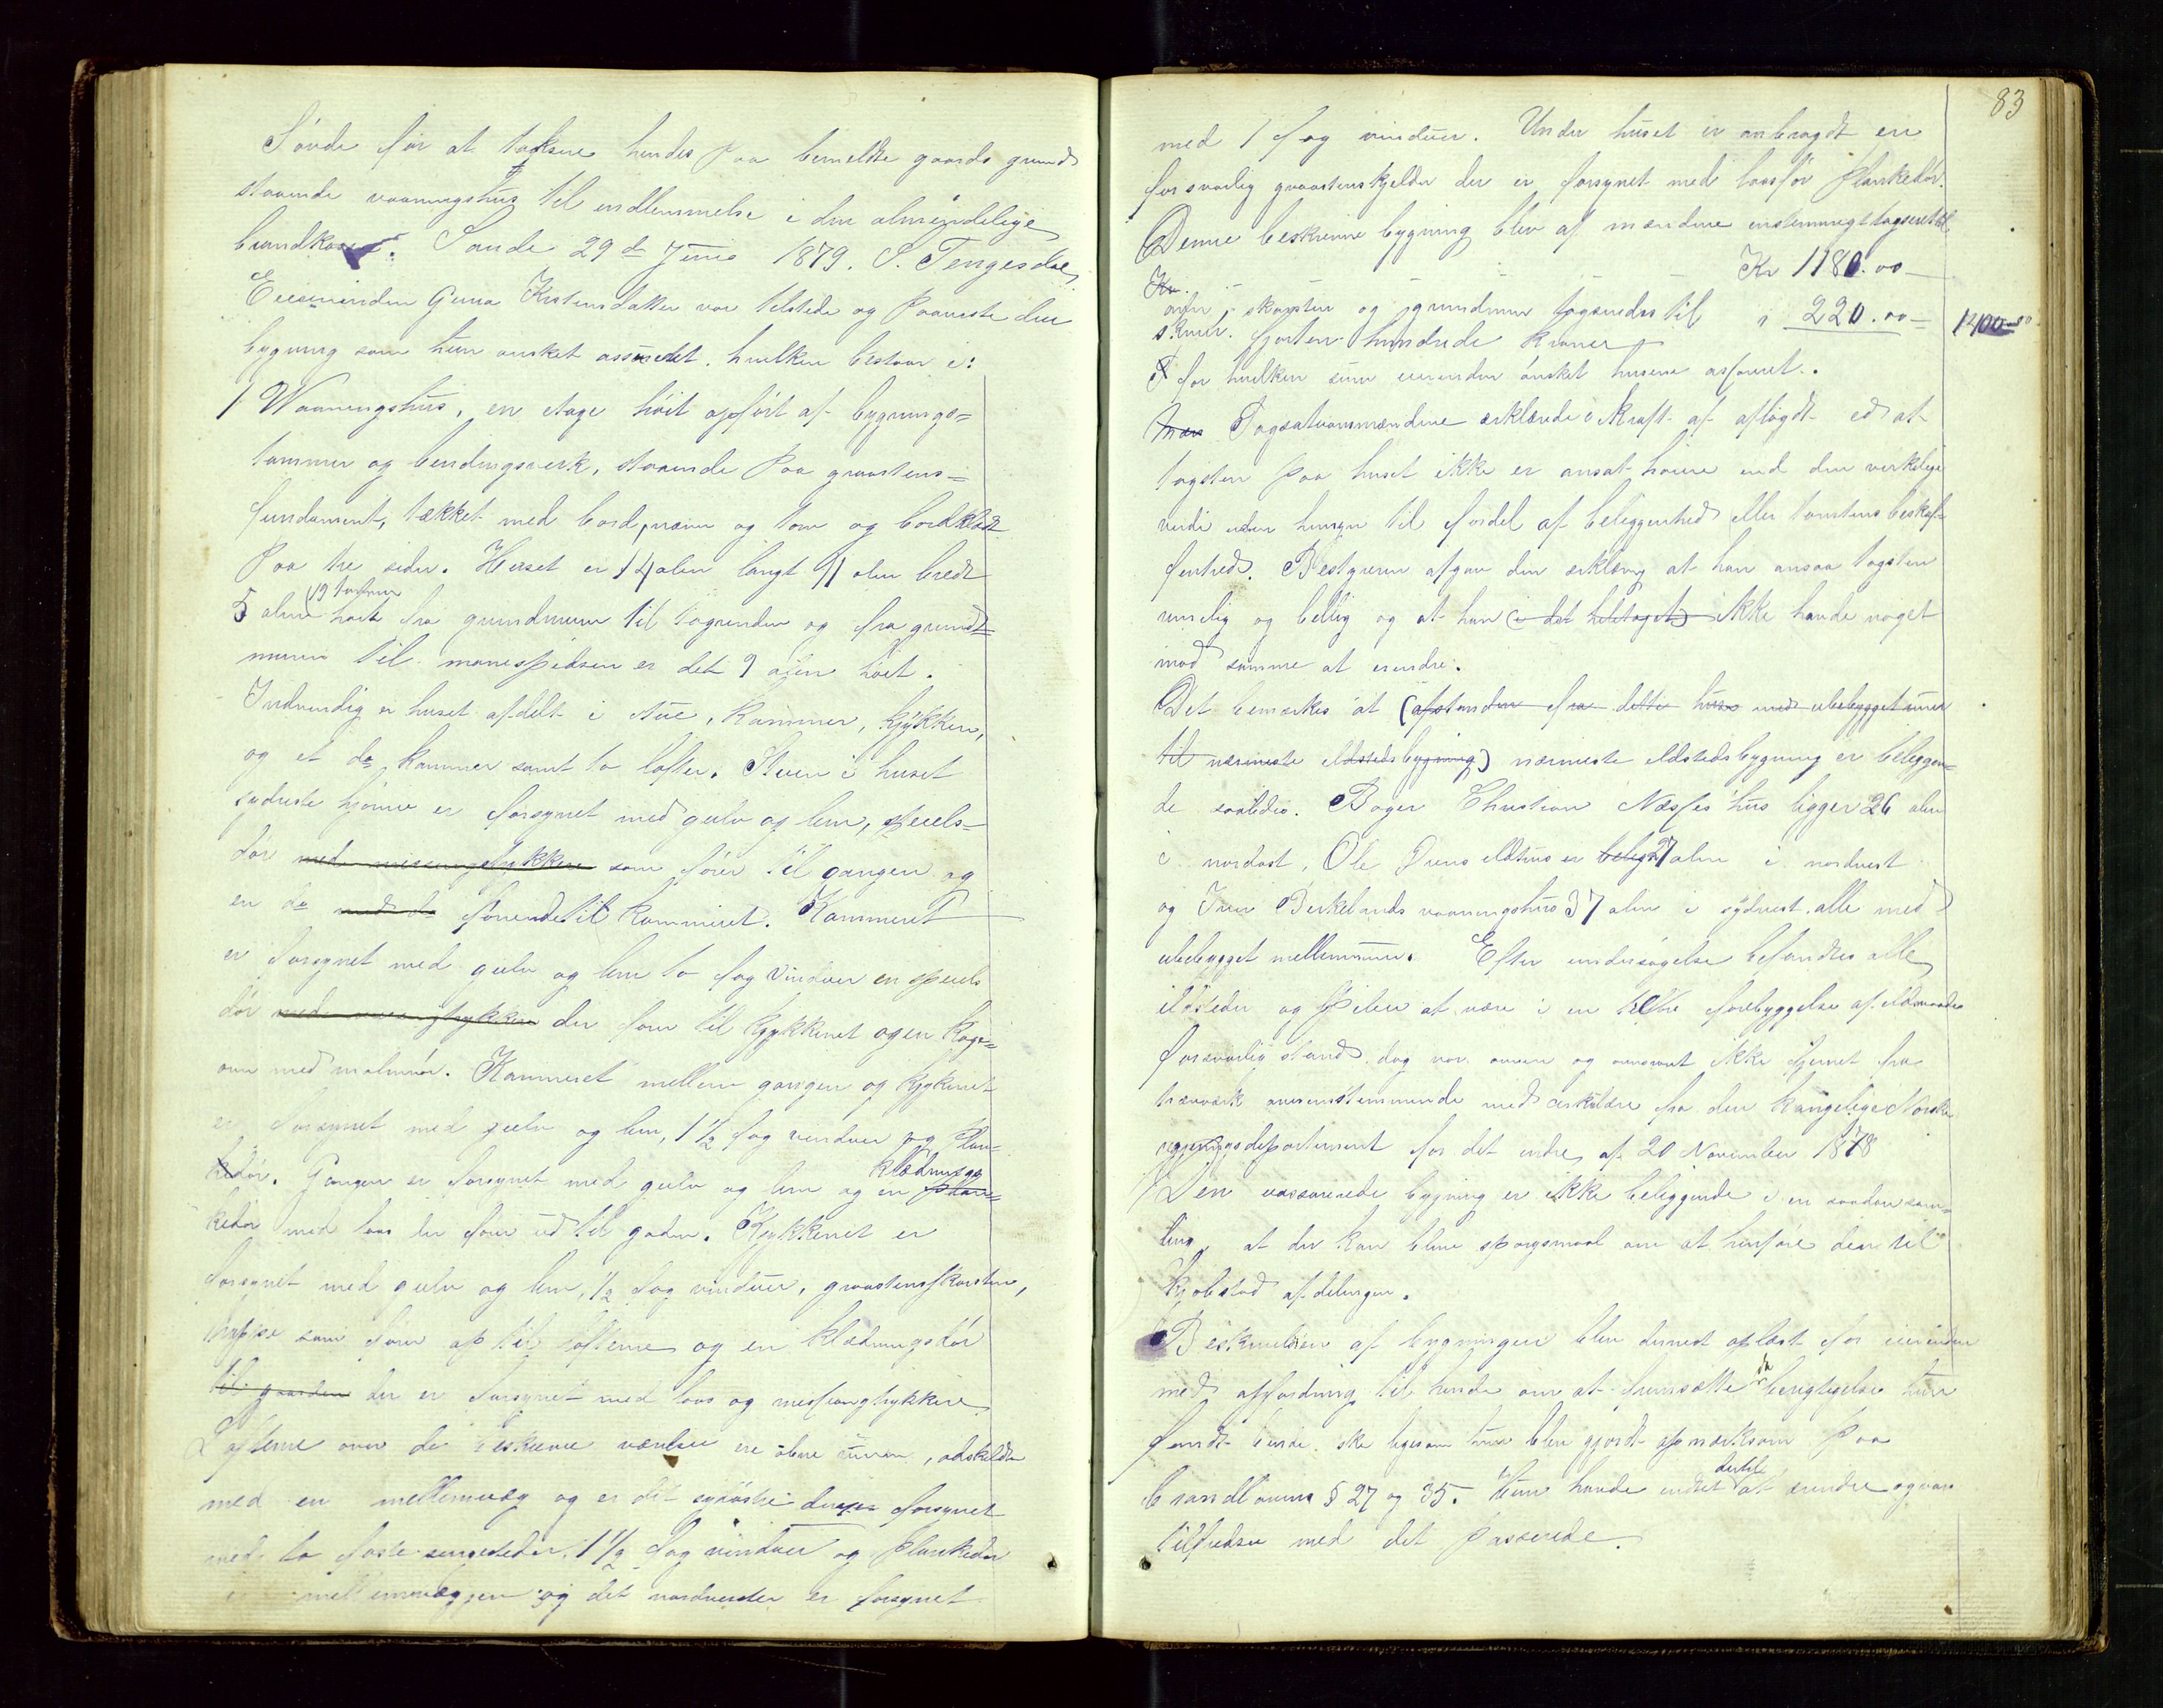 Søvde for at taksere hendes paa bemeldte gaards grund
staaende vaaningshus til indlemmelse i den almindelige
brandkasse. Sande 29de Juni 1879. S. Tengesdal
Eierinden Guna Kristensdatter var tilstede og paaviste den
bygning som hun ønsket assureret. hvilken bestaar i:
1 Waaningshus, en etage høit opført af bygnings=
tømmer og bendingsverk, staaende paa graastens=
fundament, tækket med bord, næver og torv og bordklædt
paa tre sider. Huset er 14 alen langt 11 alen bredt
5 alen 19 tommer høit fra grundmuren til tagrenden og fra grund=
muren til mønespidsen er det 9 alen høit.
Indvendig er huset afdelt i stue, kammer, kjøkken,
og et do kammer samt to lofter. Stuen i huset
sydøste hjørne er forsynet med gulv og lem, speils=
dør med messingtrykker som fører til gangen og
en do med do førende til kammeret. Kammeret
er forsynet med gulv og lem to fag vinduer en speils
dør med messingtrykker der fører til kjøkkenet og en koge=
ovn med malmrør. Kammeret mellem gangen og kjøkkenet
er forsynet med gulv og lem, 1 1/2 fag vinduer og plan=
kedør. Gangen er forsynet med gulv og lem og en klædnings plan=
kedør med laas der fører ud til gaden. Kjøkkenet er
forsynet med gulv og lem, 1/2 fag vinduer, graastensskorsten,
trappe som fører op til lofterne og en klædningsdør
til gaarden der er forsynet med laas og messingtrykker
Lofterne over de beskrevne værelser ere aabne rum, adskildte
med en mellemvæg og er det sydøstre forsynet
med to faste sengesteder, 1 1/2 fag vinduer og plankedør
i mellemvæggen og det nordvestre er forsynet
83
med 1 fag vinduer. Under huset er anbragt en
forsvarlig graastenskjelder der er forsynet med laasfør plankedør.
Denne beskrevne bygning blev af mændene enstemmigt taxeret til
Kr 1180.00
Kr.
ovn, skorsten og grundmur taxeredes til " 220.00
1400.00
skriver. fjorten hundrede Kroner
for hvilken sum eierinden ønsket husene assureret.
Taxationsmændene erklærede i kraft af aflagdt ed at
taxten paa huset ikke er ansat høiere end den virkelige
værdi uden hensyn til fordel af beliggenhed eller tomtens beskaf=
fenhed. Bestyreren afgav den erklæring at han ansaa taxten
rimelig og billig og at han (i det heletaget) ikke havde noget
mod samme at erindre.
Det bemærkes at (afstanden fra dette hus med ubebygget rum
til nærmeste ildstedsbygning) nærmeste ildstedsbygning er beliggen=
de saaledes. Bager Christian Næsses hus ligger 26 alen
i nordost, Ole Jens ildhus er belig 27 alen i nordvest
og Iver Birkelands vaaningshus 37 alen i sydvest. alle med
ubebygget mellemrum. Efter undersøgelse befandtes alle
ildsteder og piber at være i en til forebyggelse af ildsvaade
forsvarlig stand dog var ovnen og ovnsrøret ikke fjernet fra
træværk overensstemmende med cirkulære fra den kongelige Norske
regjeringsdepartement for det indre af 20 November 1878
Den assurerede bygning er ikke beliggende i en saadan sam=
ling, at der kan blive spørgsmaal om at henføre den til
kjøbstad afdelingen.
Beskrivelsen af bygningen blev dernest oplæst for eierinden
med opfordring til hende om at fremsætte de berigtigelser hun
fandt burde ske ligesom hun blev gjordt opmærksom paa
brandlovens § 27 og 35. Hun havde indtet dertil at erindre og var
tilfreds med det passerede.